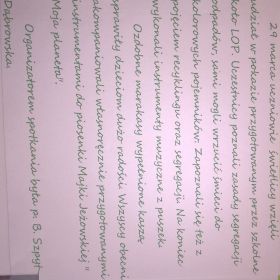 29 marca uczniowie świetlicy wzięli
udział w pokazie przygotowanym przez szkolne
koło LOP. Uczestnicy poznali zasady segregacji
odpadów, sami mogli wrzucić śmieci do
kolorowych pojemników. Zapoznali się też z
pojęciem recyklingu oraz segregacji. Na koniec
wykonali instrumenty muzyczne z puszek.
Ozdobne marakasy wypełnione kaszą
sprawiły dzieciom dużo radości! Wszyscy obecni
akompaniowali własnoręcznie przygotowanymi
instrumentami do piosenki Majki Jeżowskiej "
Moja planeta".
Organizatorem spotkania była p. B. Szpyt
Dąbrowska.